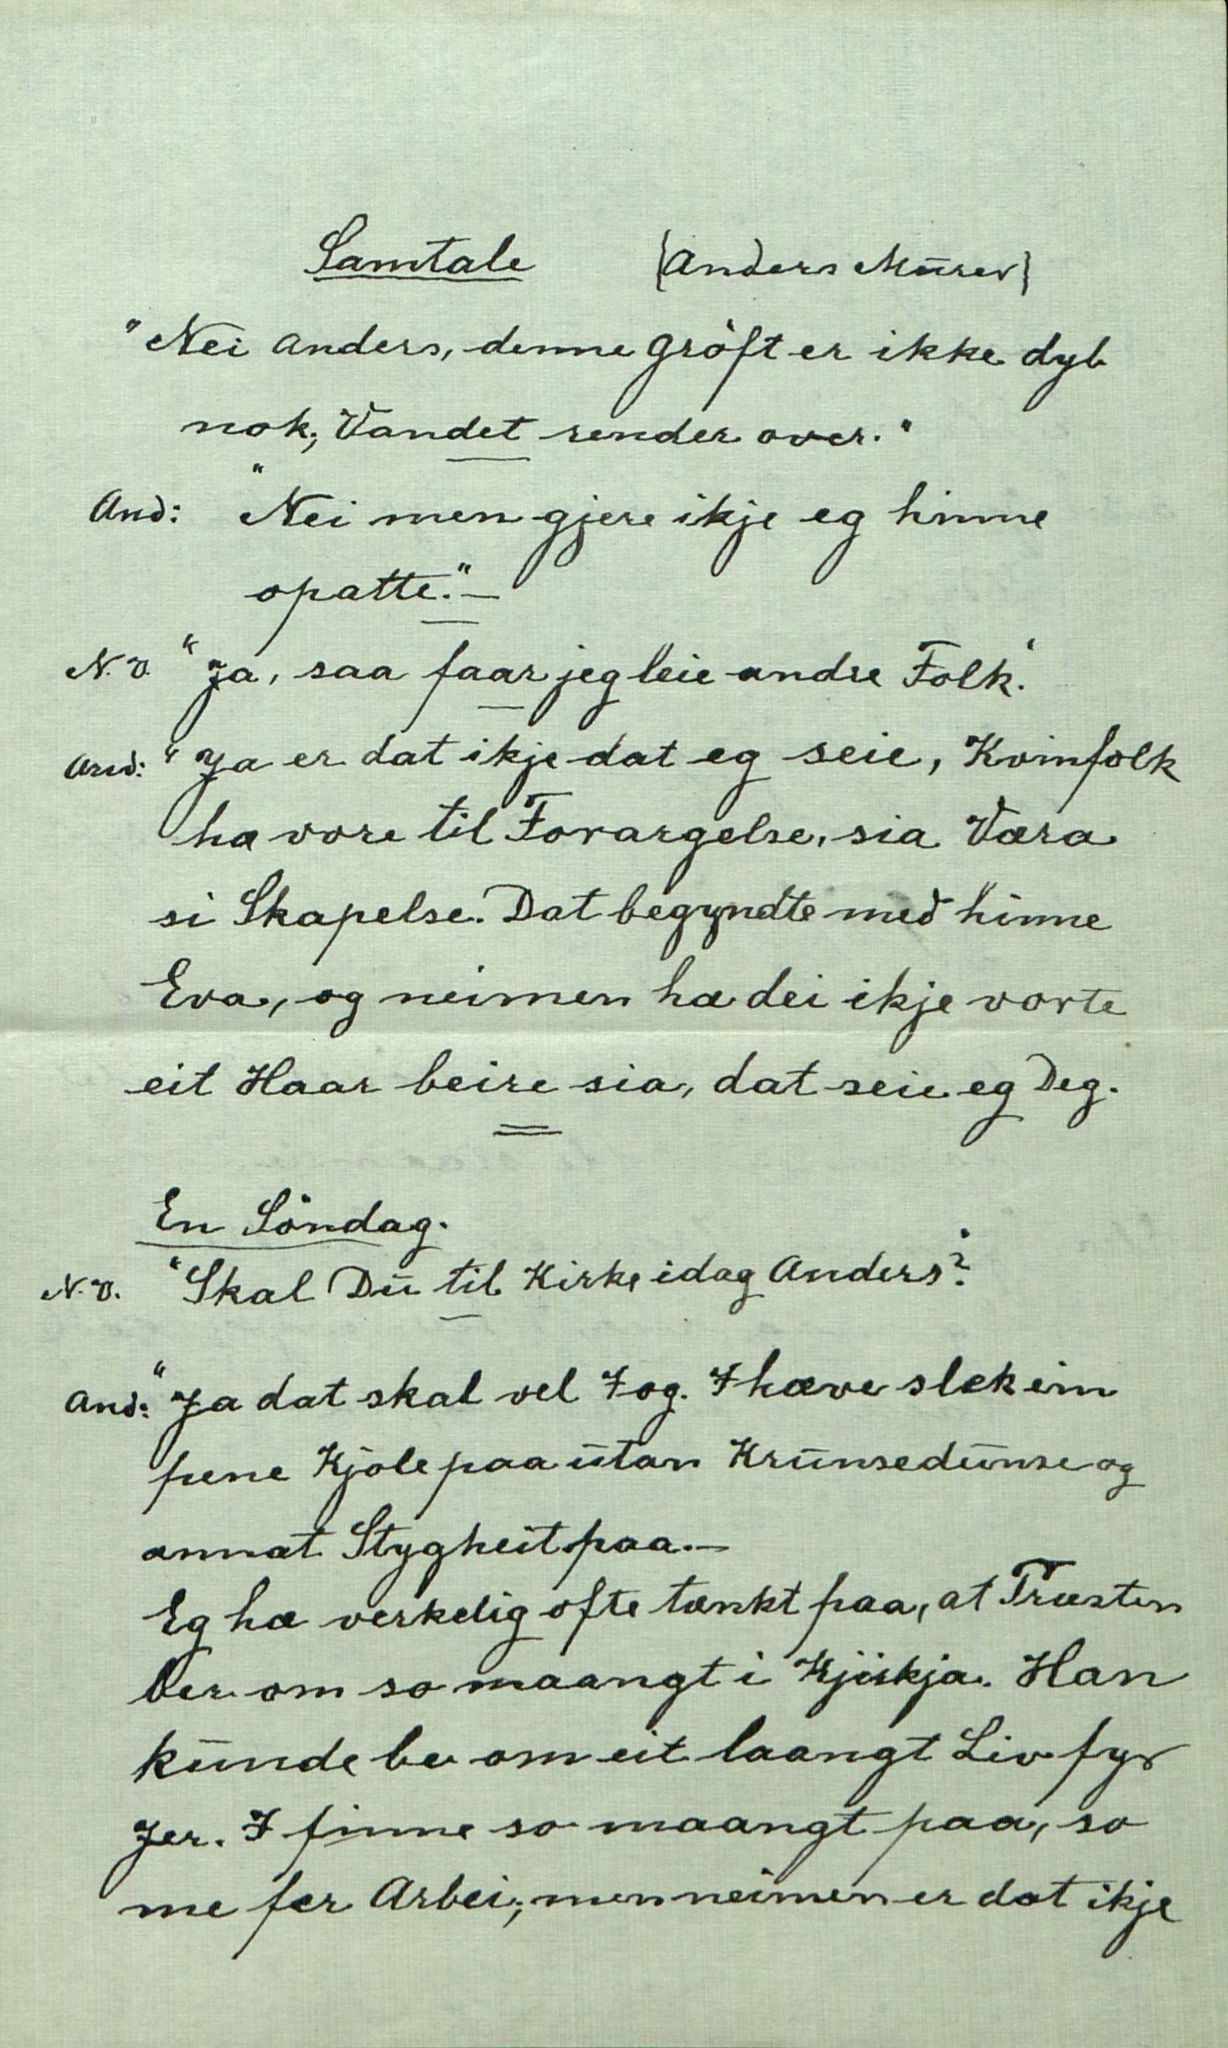 Samtale {Anders Murer}
"Nei Anders, denne Grøft er ikke dyb
nok; Vandet render over."
And: "Nei men gjere ikje eg hinne
opatte."—
N.V. "Ja, saa faar jeg leie andre Folk."
And: "Ja er dat ikje dat eg seie, Kvinfolk
ha vore til Forargelse, sia Væra
si Skapelse. Dat begyndte med hinne
Eva, og neimen ha dei ikje vorte
eit Haar beire sia, dat seie eg Deg.
En Søndag.
N.V. "Skal Du til Kirke idag Anders?"
And: "Ja dat skal vel I og. I hæve slek ein
pene Kjole paa utan Krunsedunse og
annat Stygheit paa.—
Eg ha verkelig ofte tænkt paa, at Præsten
ber om so maangt i Kjiskja. Han
kunde be om eit laangt Liv fyr
Jer. I finne so maangt paa, so
me fær Arbei; men neimen er dat ikje